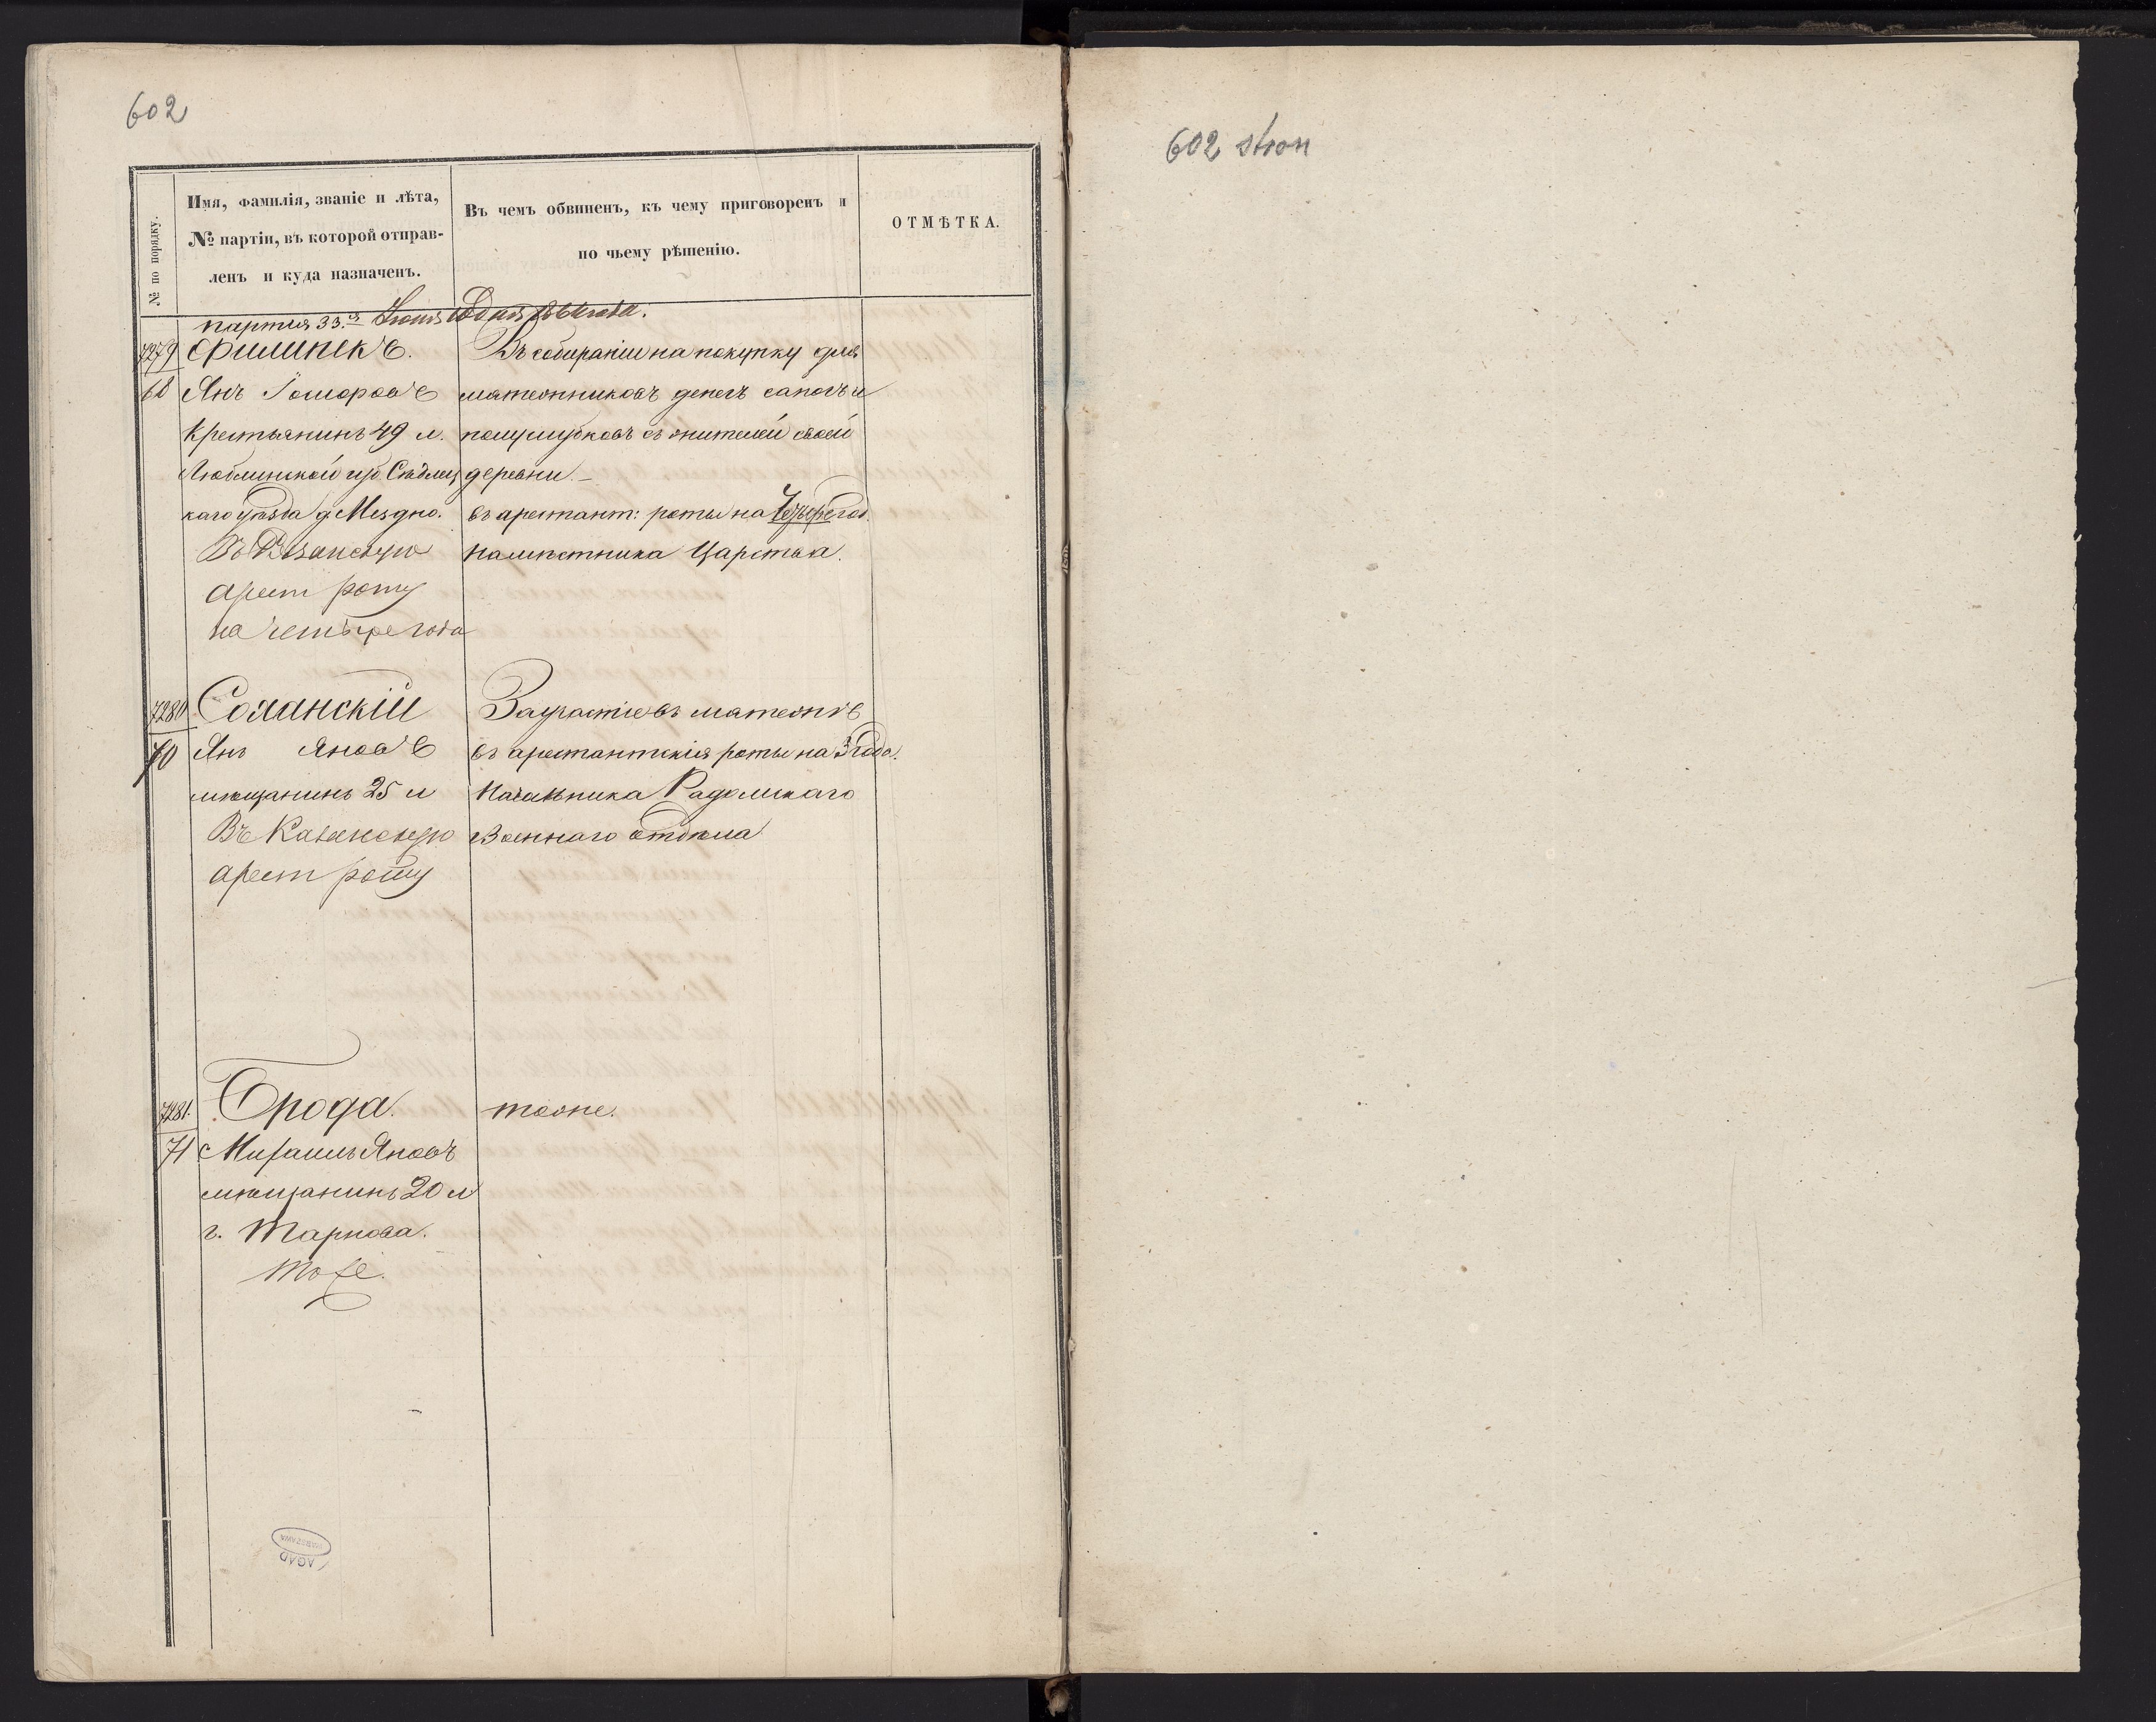 602
№ по порядку.
Имя, фамилія, званіе и лѣта,
№ партіи, въ которой отправ-
ленъ и куда назначенъ.
Въ чемъ обвиненъ, къ чему приговоренъ и
по чьему рѣшенію.
ОТМѢТКА.
партия 33.я
7279
68
Филипекъ.
Янъ
Крестьянинъ 49 л.
Люблинской губ. Сѣдлец
каго уѣзда д.
Въ Рязанскую
арест роту
на четыре года
Въ собираніи на покупку для
мятежниковъ денегъ сапогъ и
полушубковъ съ жителей своей
деревни. –
въ арестант: роты на Четыре год.
Намѣстника Царства.
7280
70
Янъ Яновъ
мѣщанинъ 25 л
Въ Казанскую
арест роту
За участіе въ мятежѣ
въ арестантскія роты на 3 года.
Начальника Радомскаго
Военнаго отдѣла
7281.
71
Брода.
Михаилъ Яновъ
мѣщанинъ 20 л
г. Тарнова.
тоже.
тоже.
AGAD
WARSZAWA
602 stron